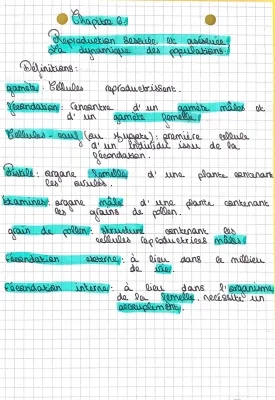 Chapitre 6:
Reproduction sexuée et asexuée.
La dynamique des populations.
Définitions:
gamète: Cellules reproductrissent.
fécondation: rencontre d'un gamète mâles et
d'un gamète femelle.
Cellules-œuf (ou zygote): première cellule
d'un individut issu de la
fécondation.
Pistile: organe femelle d'une plante contenant
les ovules.
étamines: organe mâle d'une plante contenant
les grains de pollen.
grain de pollen: structure contenant les
cellules reproductrices mâles.
fécondation externe: à lieu dans le millieu
de vie.
fécondation interne: à lieu dans l'organisme
de la femelle. nécessite un
accouplement.